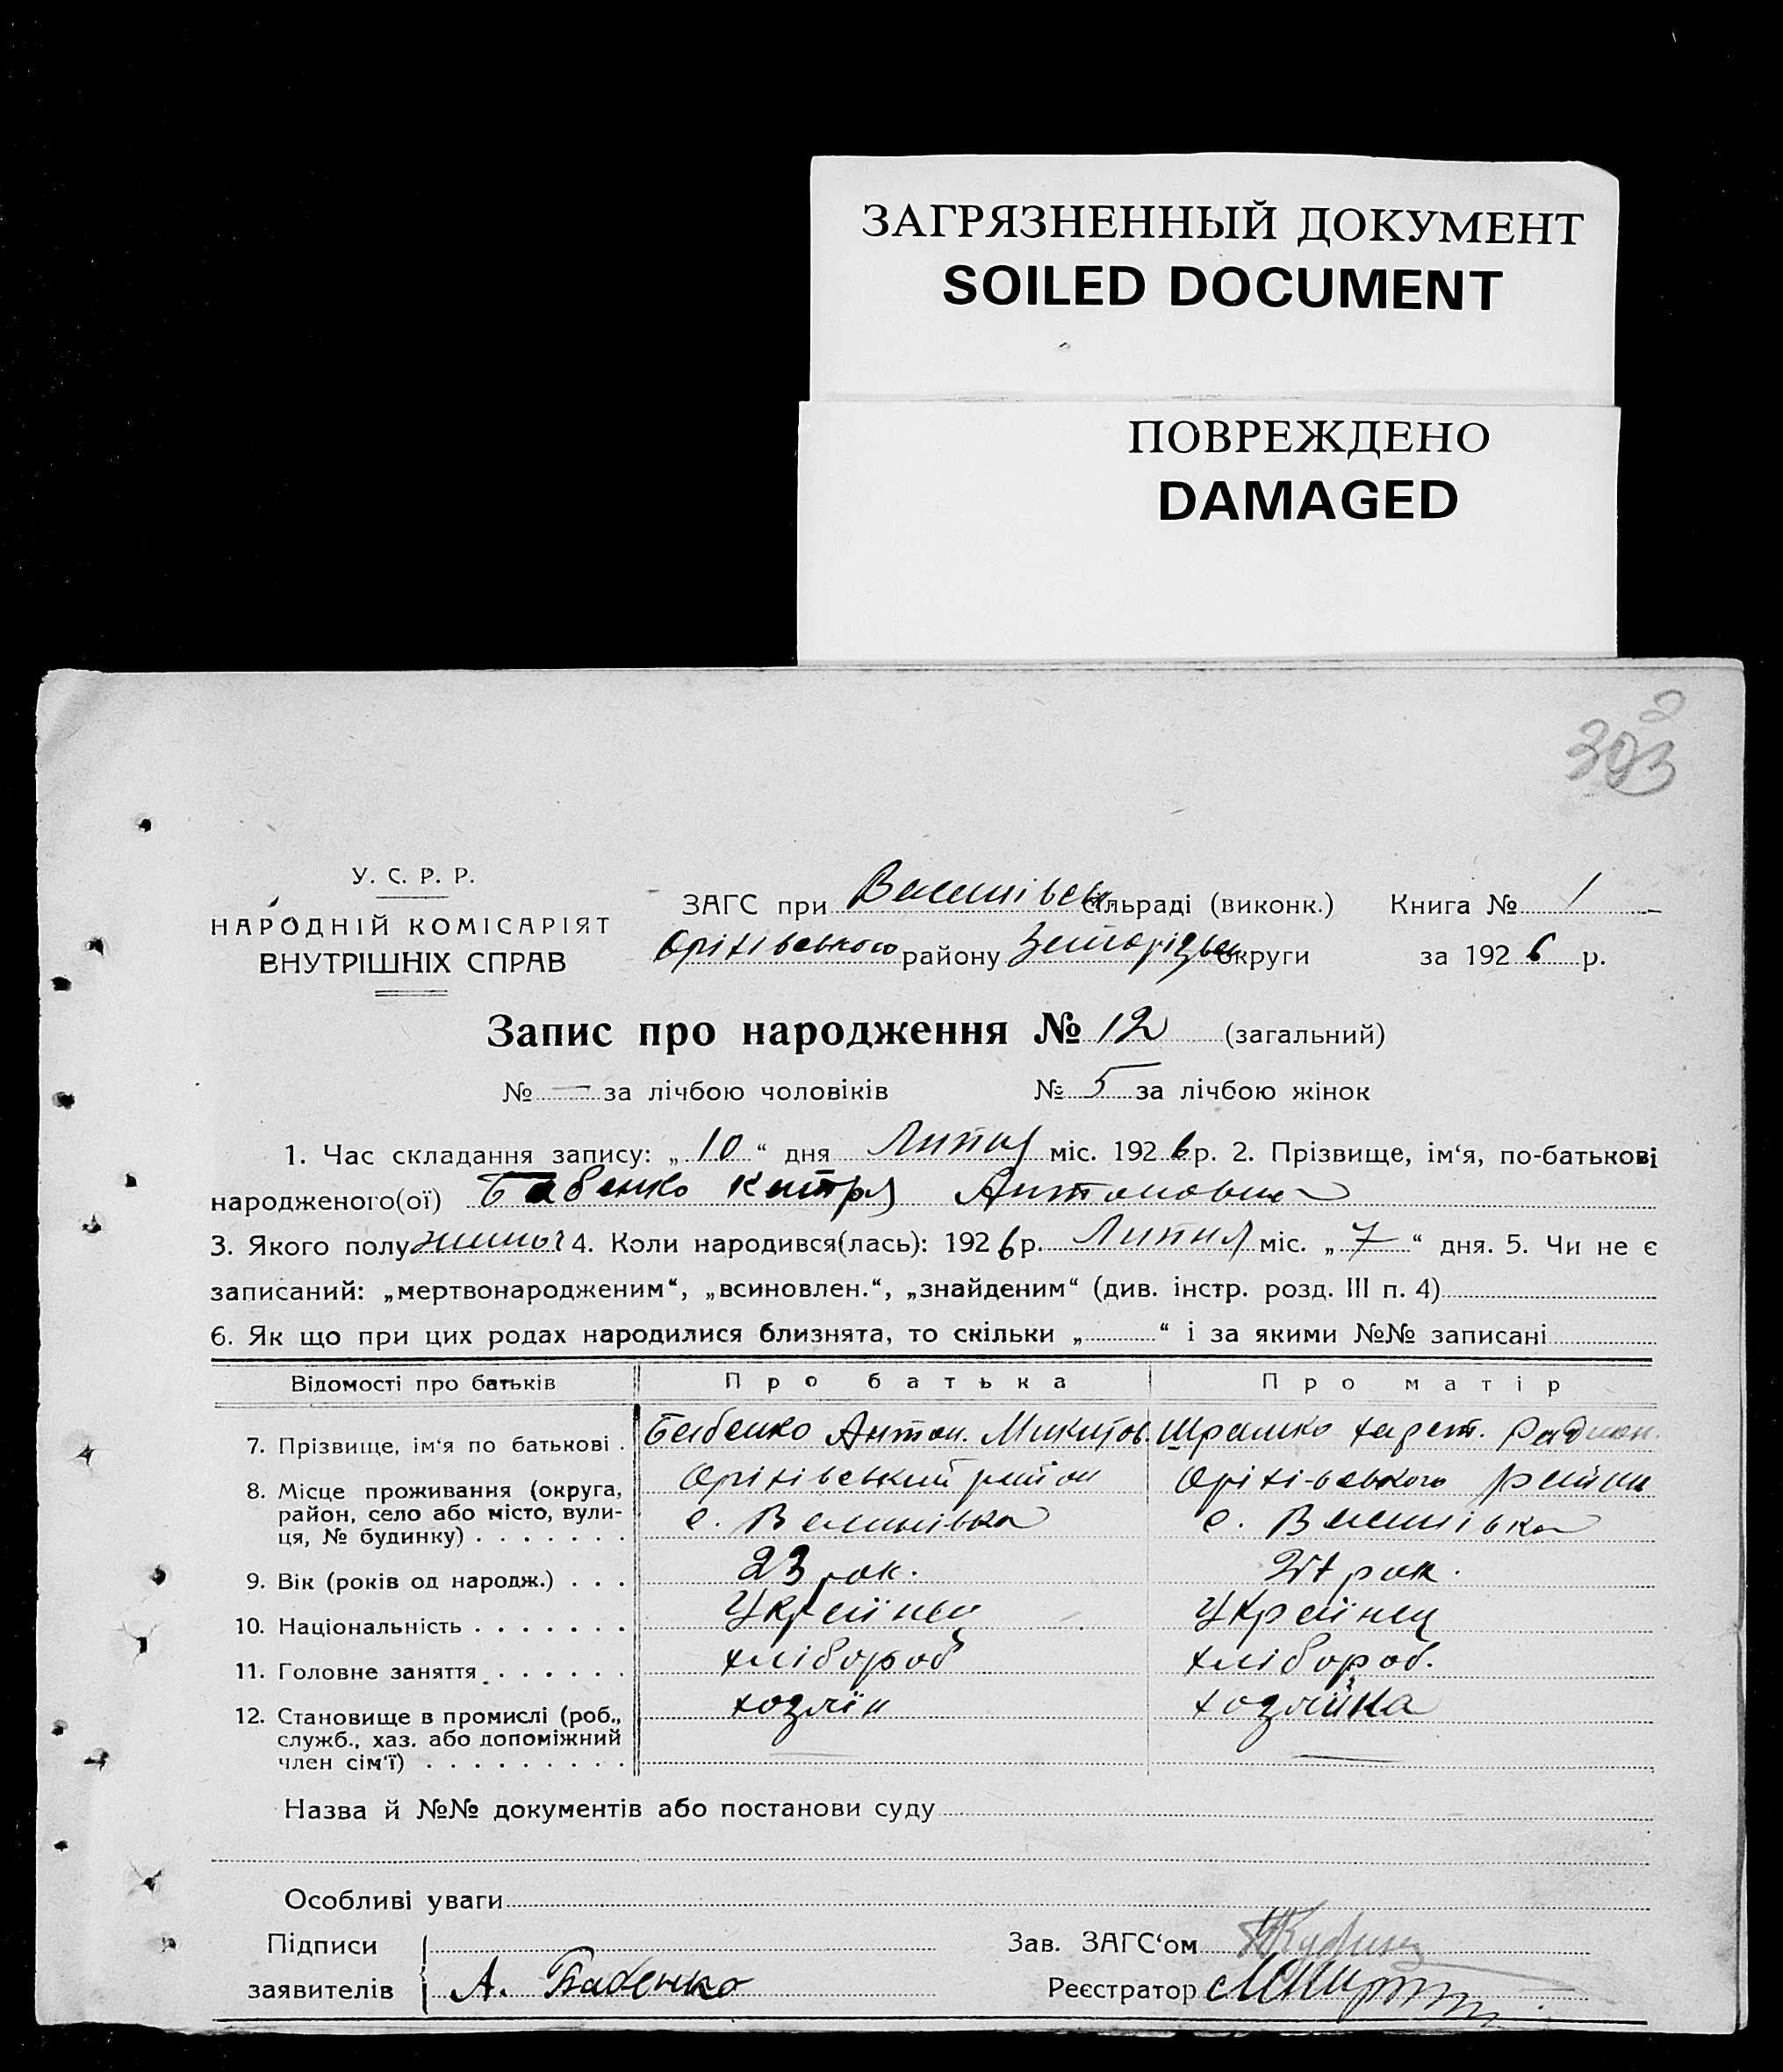 ЗАГРЯЗНЕННЫЙ ДОКУМЕНТ
SOILED DOCUMENT
ПОВРЕЖДЕНО
DAMAGED
393
У. С. Р. Р.
НАРОДНІЙ КОМІСАРІЯТ
ВНУТРІШНІХ СПРАВ
ЗАГС при сільраді (виконк.) Книга № 1
Оріхівського району округи за 1926 р.
Запис про народження № 12 (загальний)
№ — за лічбою чоловіків № 5 за лічбою жінок
1. Час складання запису: „10“ дня Липня міс. 1926 р. 2. Прізвище, ім‘я, по-батькові
народженого(ої) Бабенко Катря Антоновна
3. Якого полу 4. Коли народився(лась): 1926 р. Липня міс. „7“ дня. 5. Чи не є
записаний: „мертвонародженим“, „всиновлен.“, „знайденим“ (див. інстр. розд. III п. 4)
6. Як що при цих родах народилися близнята, то скільки „ “ і за якими №№ записані
Відомості про батьків Про батька Про матір
7. Прізвище, ім‘я по батькові . Бабенко Антон. Микитов. Шрамко Радион.
8. Місце проживання (округа, Оріхівський район Оріхі-вського район
район, село або місто, вули- с. с.
ця, № будинку) . . . . . . .
9. Вік (років од народж.) . . . 23 рок. рок.
10. Національність . . . . . . . Українец Українец
11. Головне заняття . . . . . . хлібороб хлібороб.
12. Становище в промислі (роб., хозяїн хозяйка
служб., хаз. або допоміжний
член сім‘ї) . . . . . . . . .
Назва й №№ документів або постанови суду
Особливі уваги
Підписи Зав. ЗАГС‘ом
заявителів А. Бабенко Реєстратор